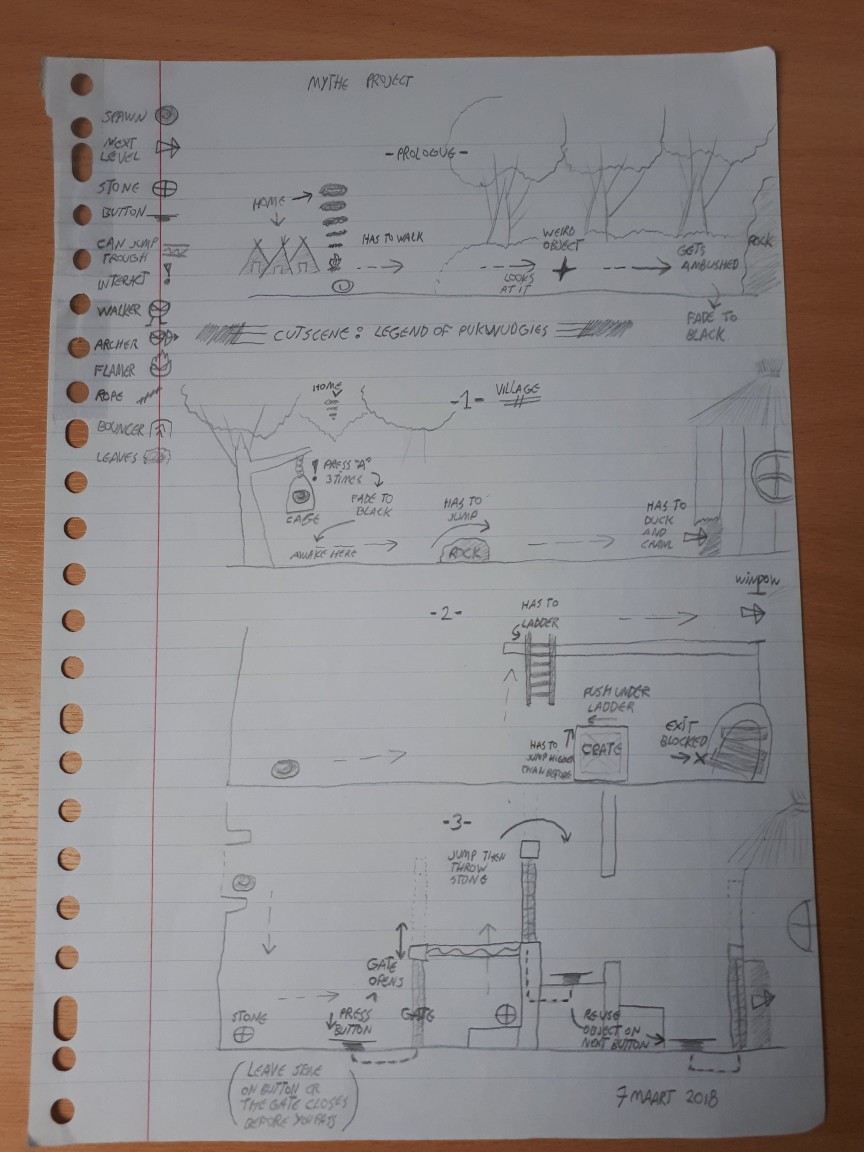 MYTHE PROJECT
SPAWN
NEXT
LEVEL
STONE
BUTTON
CAN JUMP
TROUGH
INTERACT
WALKER
ARCHER
FLAMER
ROPE
BOUNCER
LEAVES
-PROLOGUE-
HOME
HAS TO WALK
LOOKS
AT IT
WEIRD
OBJECT
GETS
AMBUSHED
ROCK
FADE TO
BLACK
CUTSCENE: LEGEND OF PUKWUDGIES
-1- VILLAGE
HOME
! PRESS "A"
3 TIMES
FADE TO
BLACK
CAGE
AWAKE HERE
HAS TO
JUMP
ROCK
HAS TO
DUCK
AND
CRAWL
-2-
HAS TO
LADDER
WINDOW
PUSH UNDER
LADDER
CRATE
HAS TO
JUMP HIGHER
THAN BEFORE
EXIT
BLOCKED
X
-3-
JUMP THEN
THROW
STONE
GATE
OPENS
STONE
PRESS
BUTTON
GATE
REUSE
OBJECT ON
NEXT BUTTON
(LEAVE STONE
ON BUTTON OR
THE GATE CLOSES
BEFORE YOU PASS)
7 MAART 2018